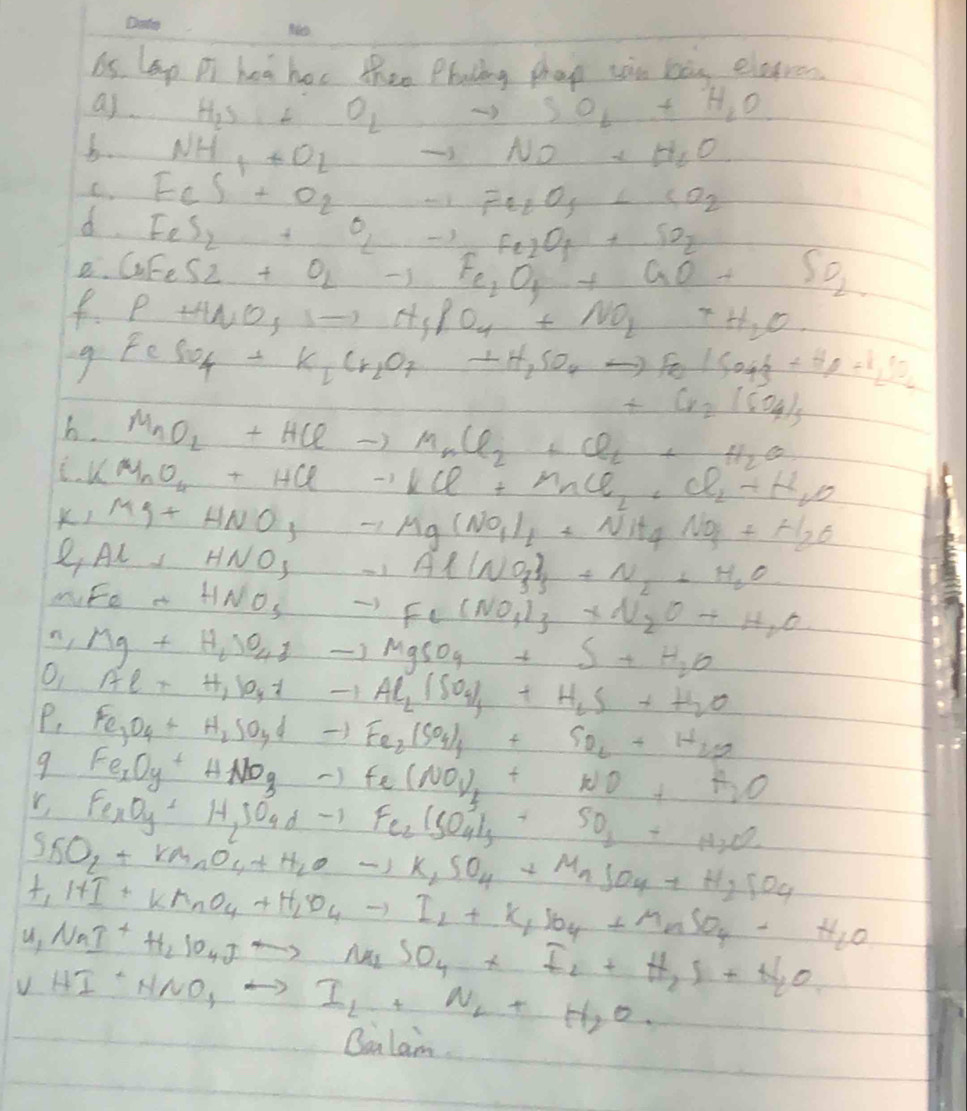 Date No
B5. Lập Pt hoá học theo Phương pháp cân bằng electron.
a). H2S + O2 → SO2 + H2O
b. NH3 + O2 → NO + H2O
c. FeS + O2 → Fe2O3 + SO2
d. FeS2 + O2 → Fe2O3 + SO2
e. CuFeS2 + O2 → Fe2O3 + CuO + SO2
f. P + HNO3 → H3PO4 + NO2 + H2O.
g FeSO4 + K2Cr2O7 + H2SO4 → Fe2(SO4)3 + H2O + K2SO4
+ Cr2(SO4)3
h. MnO2 + HCl → MnCl2 + Cl2 + H2O
i. KMnO4 + HCl → KCl + MnCl2 + Cl2 + H2O
k, Mg + HNO3 → Mg(NO3)2 + NH4NO3 + H2O
l, Al + HNO3 → Al(NO3)3 + N2 + H2O
m, Fe + HNO3 → Fe(NO3)3 + N2O + H2O
n, Mg + H2SO4đ → MgSO4 + S + H2O
O, Al + H2SO4đ → Al2(SO4)3 + H2S + H2O
P, Fe3O4 + H2SO4đ → Fe2(SO4)3 + SO2 + H2O
q FexOy + HNO3 → Fe(NO3)3 + NO + H2O
r, FexOy + H2SO4đ → Fe2(SO4)3 + SO2 + H2O
S SO2 + KMnO4 + H2O → K2SO4 + MnSO4 + H2SO4
t, HI + KMnO4 + H2SO4 → I2 + K2SO4 + MnSO4 + H2O
u, NaI + H2SO4đ → Na2SO4 + I2 + H2S + H2O.
v HI + HNO3 → I2 + N2 + H2O.
Bài làm.